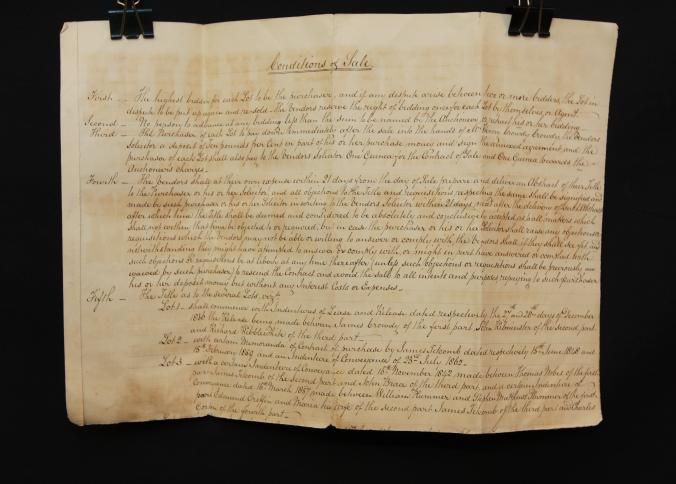 Conditions of Sale
First — The highest bidder for each Lot to be the purchaser, and if any dispute arise between two or more bidders, the Lot in
dispute to be put up again and resold. The Vendors reserve the right of bidding once for each Lot by themselves or Agent
Second — No person to advance at any bidding less than the sum to be named by the Auctioneer or retract his or her bidding
Third — The Purchaser of each Lot to pay down immediately after the sale into the hands of Mr Crowdy the Vendors
Solicitor a deposit of ten pounds per Cent in part of his or her purchase money and sign the annexed agreement and the
purchaser of each Lot shall also pay to the Vendors Solicitor One Guinea for the Contract of Sale and One Guinea towards the
Auctioneers charges.
Fourth — The Vendors shall at their own expense within 21 days from the day of Sale prepare and deliver an Abstract of their Title
to the Purchaser or his or her Solicitor, and all objections to the Title and requisitions respecting the same shall be signified and
made by such purchaser or his or her Solicitor in writing to the Vendors Solicitor within 21 days next after the delivery of such Abstract
after which time the Title shall be deemed and considered to be absolutely and conclusively accepted as all matters which
shall not within that time be objected to or required, but in case the purchaser or his or her Solicitor shall raise any objections or
requisitions which the Vendors may not be able or willing to answer or comply with the Vendors shall if they shall see fit and
notwithstanding they might have attempted to answer or comply with or might in part have answered or complied with
such objections or requisitions be at liberty at any time thereafter (unless such objections or requisitions shall be previously
waived by such purchaser) to rescind the Contract and avoid the sale to all intents and purposes repaying to such purchaser
his or her deposit money but without any Interest Costs or Expenses.
Fifth — The Title as to the several Lots, viz:
Lot 1 — shall commence with Indentures of Lease and Release dated respectively the 27th and 28th days of December
the Release being made between James Crowdy of the first part John of the second part
and Richard of the third part —
Lot 2 — with certain Memoranda of Contract of purchase by James dated respectively 15th June 1848 and
15th February 1859 and an Indenture of Conveyance of 23rd July 1862 —
Lot 3 — with a certain Indenture of Conveyance dated 16th November 1842 made between Thomas of the first
part James of the Second part and John Brace of the third part and a certain Indenture of
Conveyance dated 16th March 1857 made between William Plummer and Stephen Matthews Plummer of the first
part Edmund and Maria his wife of the second part James of the third part and Charles
of the fourth part —